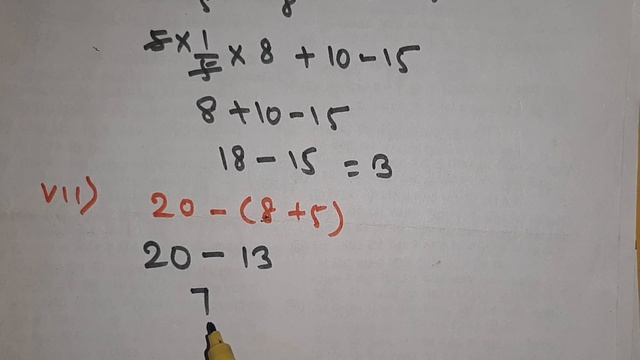 5 × 1/5 × 8 + 10 - 15
8 + 10 - 15
18 - 15 = 3
VII) 20 - (8 + 5)
20 - 13
7